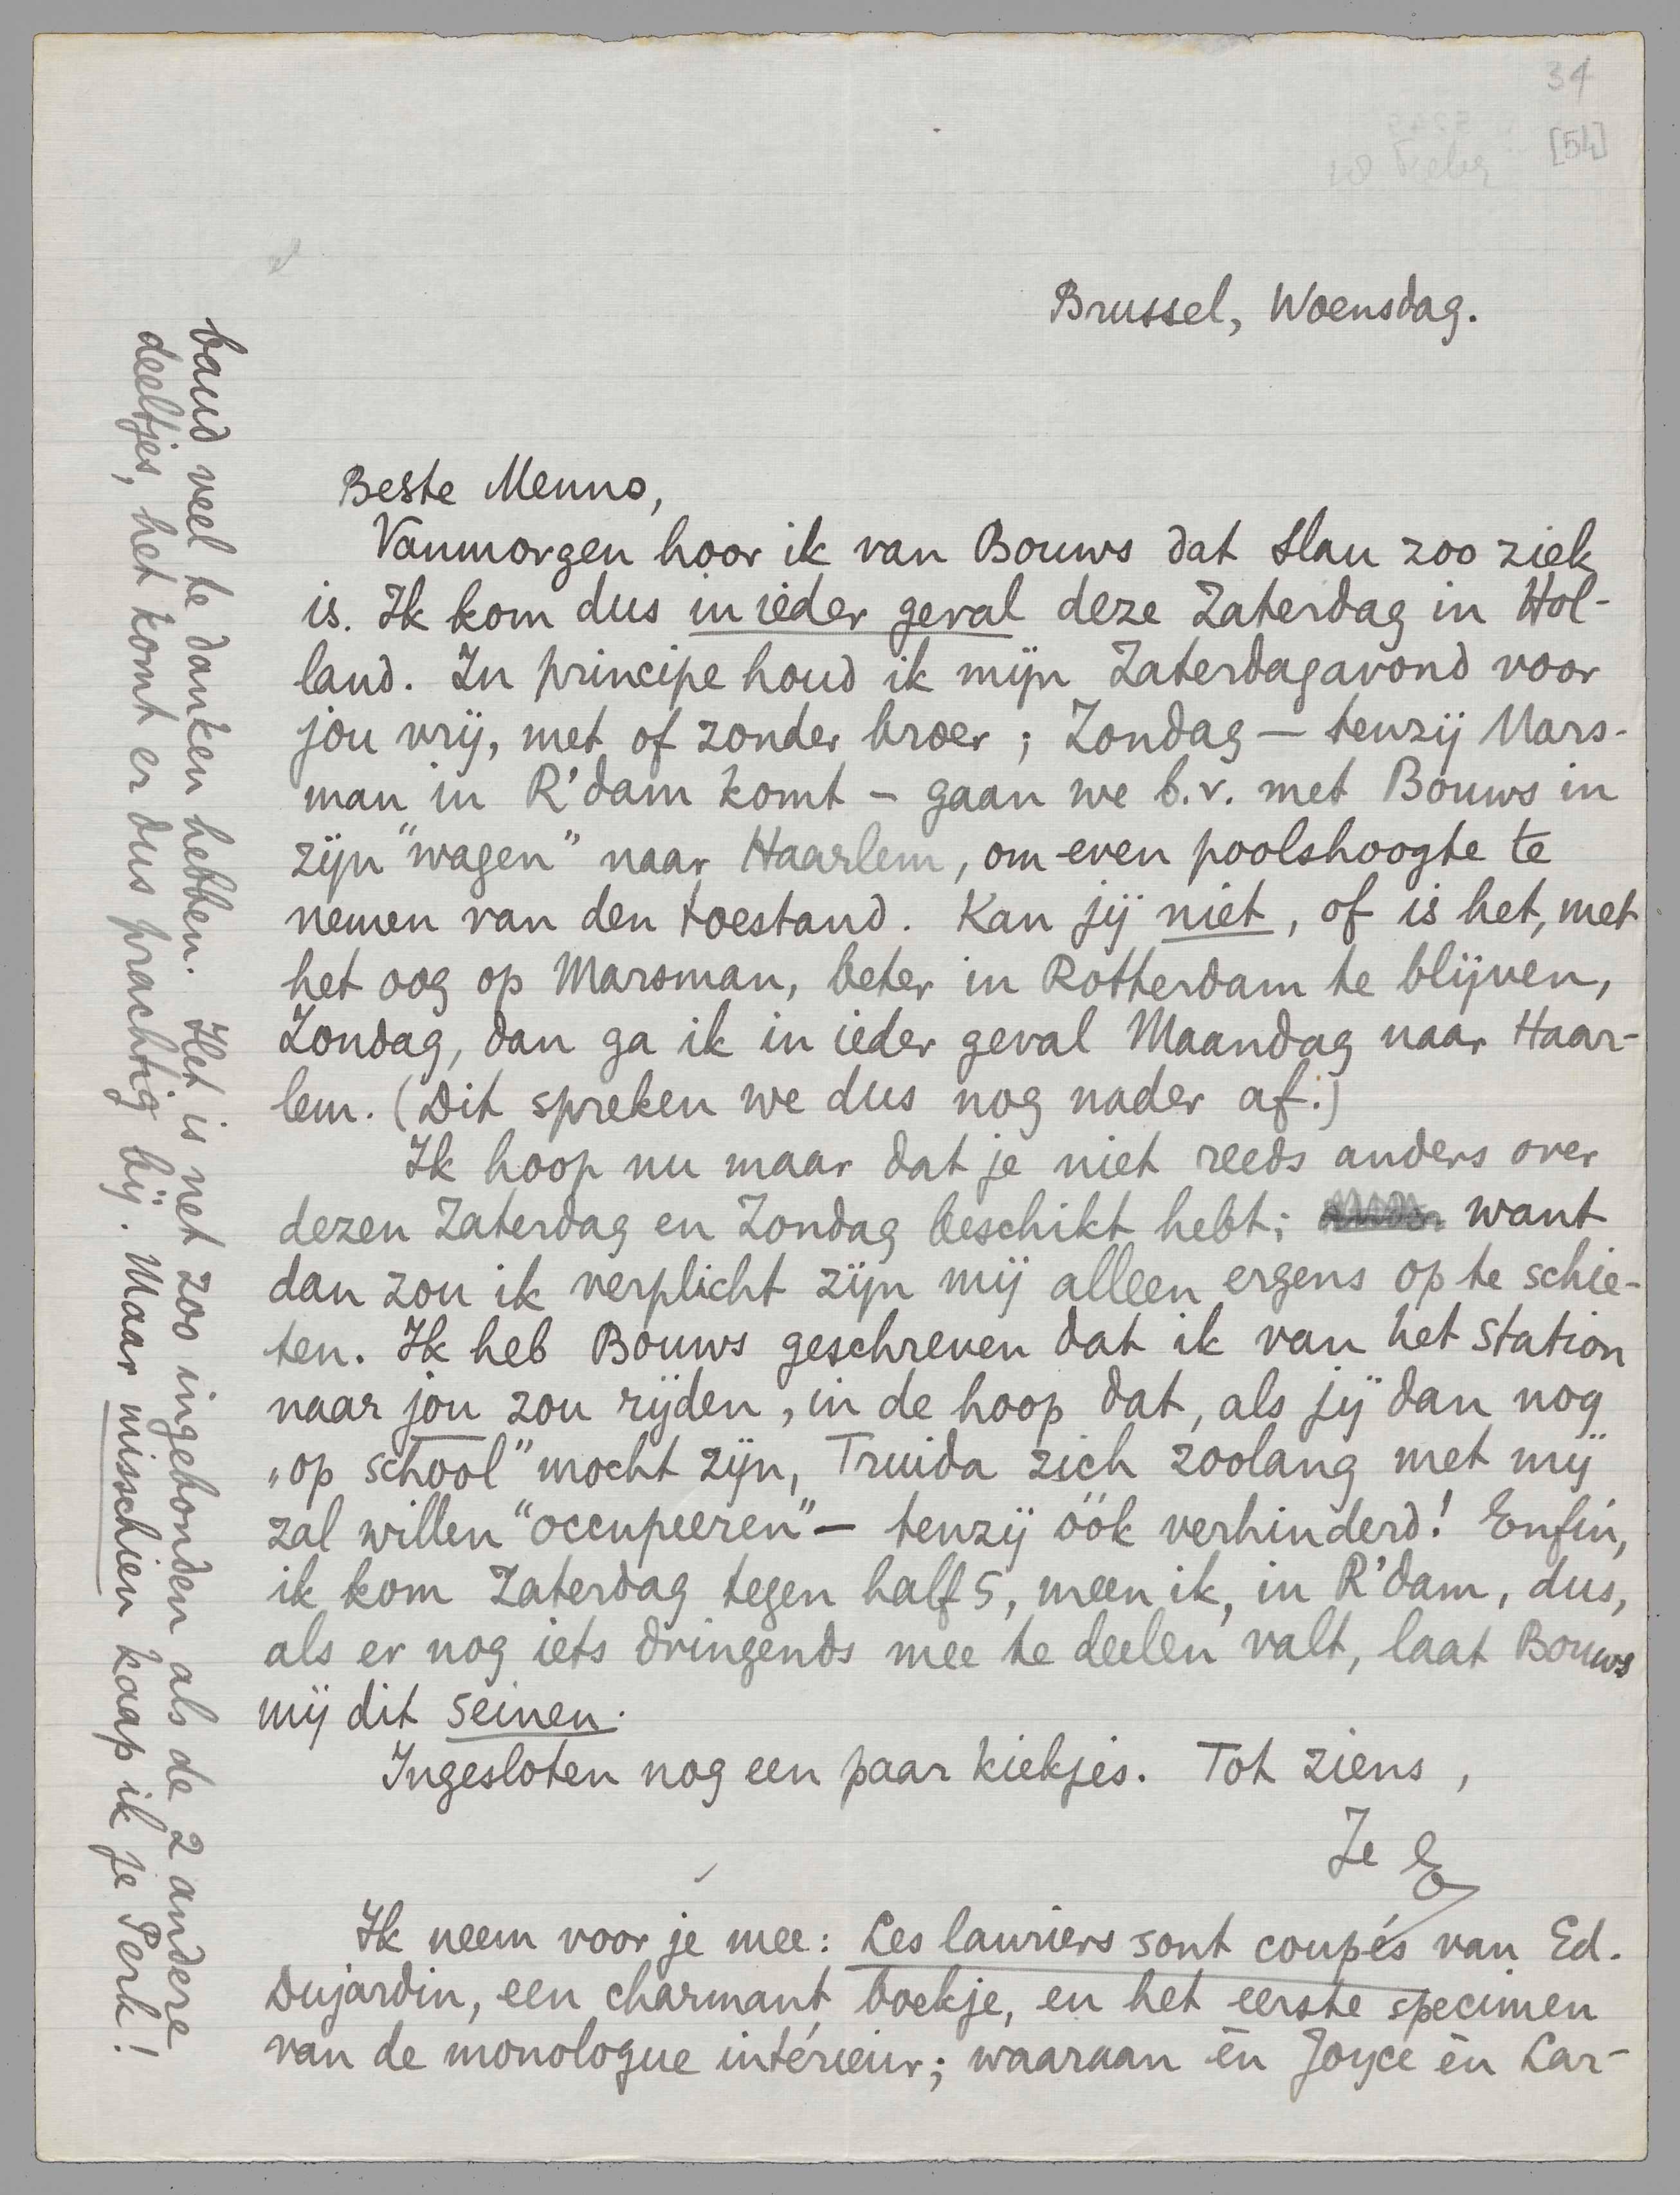 34
[54]
Brussel, Woensdag.
Beste Menno,
Vanmorgen hoor ik van Bouws dat Slau zoo ziek
is. Ik kom dus in ieder geval deze Zaterdag in Hol-
land. In principe houd ik mijn Zaterdagavond voor
jou vrij, met of zonder broer; Zondag — tenzij Mars-
man in R'dam komt — gaan we b.v. met Bouws in
zijn "wagen" naar Haarlem, om even poolshoogte te
nemen van den toestand. Kan jij niet, of is het, met
het oog op Marsman, beter in Rotterdam te blijven,
Zondag, dan ga ik in ieder geval Maandag naar Haar-
lem. (Dit spreken we dus nog nader af.)
Ik hoop nu maar dat je niet reeds anders over
dezen Zaterdag en Zondag beschikt hebt; want
dan zou ik verplicht zijn mij alleen ergens op te schie-
ten. Ik heb Bouws geschreven dat ik van het station
naar jou zou rijden, in de hoop dat, als jij dan nog
„op school" mocht zijn, Truida zich zoolang met mij
zal willen "occupeeren" — tenzij óók verhinderd! Enfin,
ik kom Zaterdag tegen half 5, meen ik, in R'dam, dus,
als er nog iets dringends mee te deelen valt, laat Bouws
mij dit seinen.
Ingesloten nog een paar kiekjes. Tot ziens,
Je E
Ik neem voor je mee: Les lauriers sont coupés van Ed.
Dujardin, een charmant boekje, en het eerste specimen
van de monologue intérieur; waaraan èn Joyce èn Lar-
baud veel te danken hebben. Het is net zoo ingebonden als de 2 andere
deeltjes, het komt er dus prachtig bij. Maar misschien kaap ik je Perk!